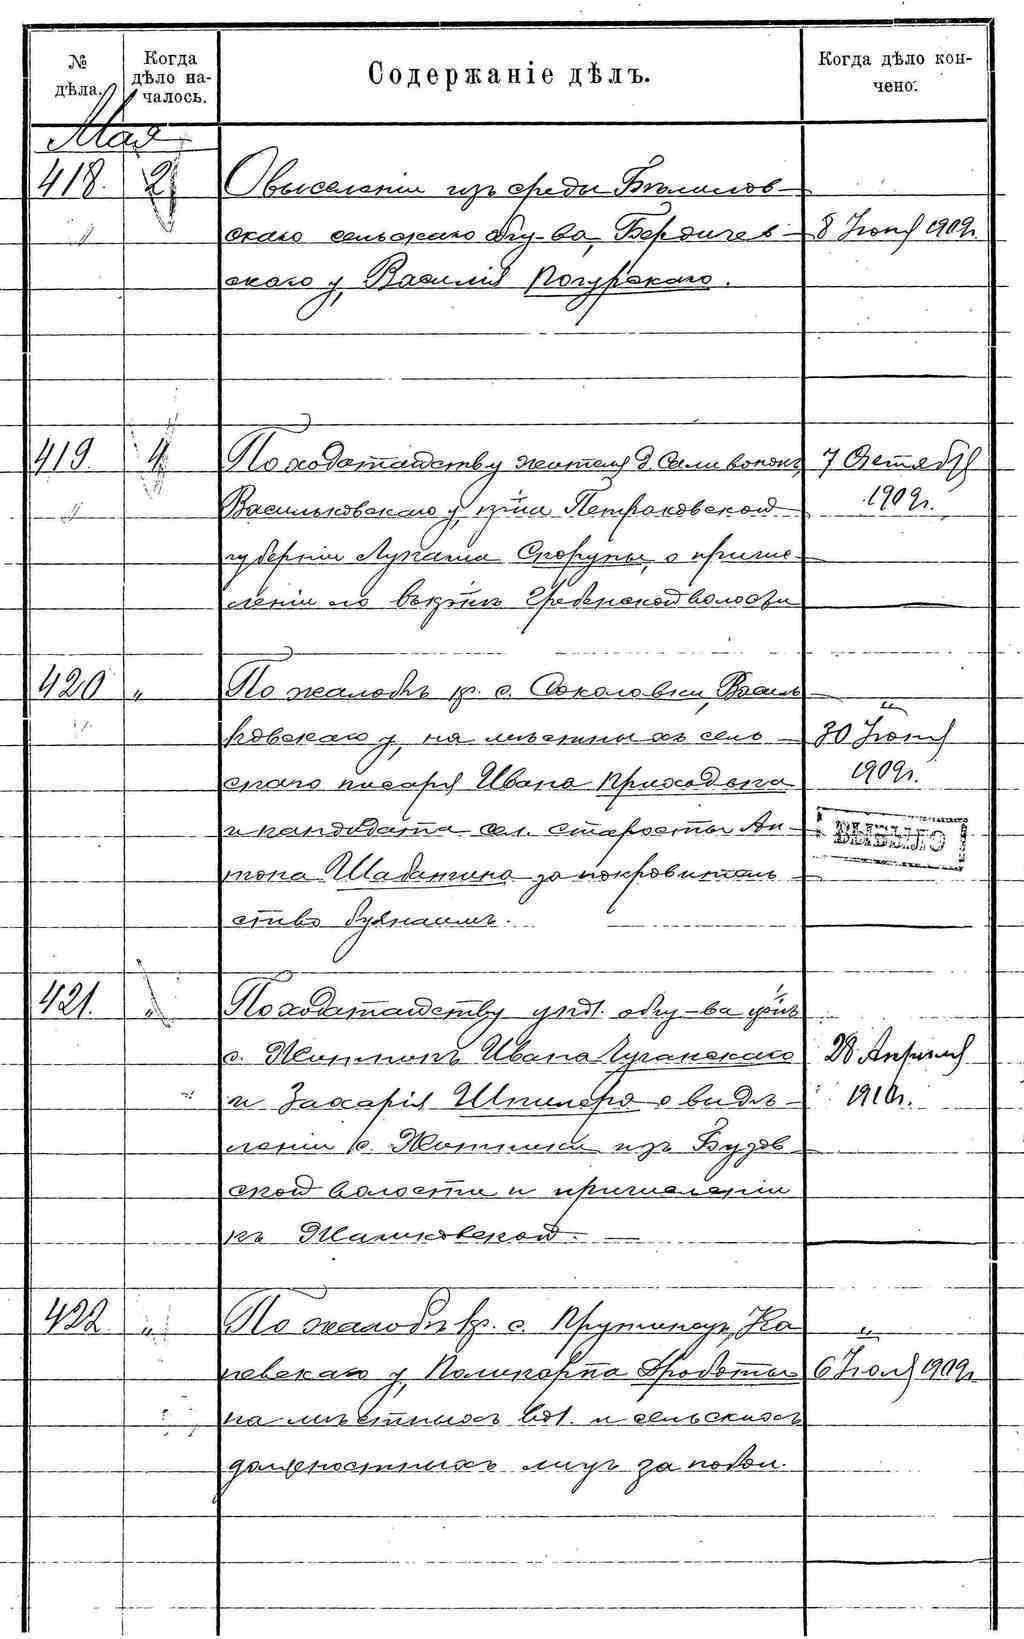 № дѣла.
Когда дѣло на-
чалось.
Содержаніе дѣлъ.
Когда дѣло кон-
чено.
Мая
418. 2
О выселеніи изъ среды Бѣлилов-
скаго сельскаго общ-ва, Бердичев-
скаго у, Василія Погурскаго.
8 Іюня 1909г.
419. 4
По ходатайству жителя д. Саливонокъ,
Васильковскаго у,
Петроковской
губерніи Лукаша Скорупы, о причис-
леніи
Гребенской волости
7 Октября
1909г.
420 "
По жалобѣ кр. с. Соколовки, Василь
ковскаго у, на мѣстныхъ сель-
скаго писаря Ивана Приходька
и кандидата сел. старосты Ан-
тона за покровитель
ство буянамъ.
30 Іюня
1909г.
ВЫБЫЛО
421. "
По ходатайству упол. общ-ва
с. Ивана Чуганскаго
и Захарія Шпилера о выдѣ-
леніи с. изъ Бузов-
ской волости и причисленіи
къ
28 Апрѣля
1910г.
422 "
По жалобѣ кр. с. Ка
невскаго у, Поликарпа Дроботы
на мѣстныхъ вол. и сельскихъ
должностныхъ лицъ за побои.
6 Іюля 1909г.